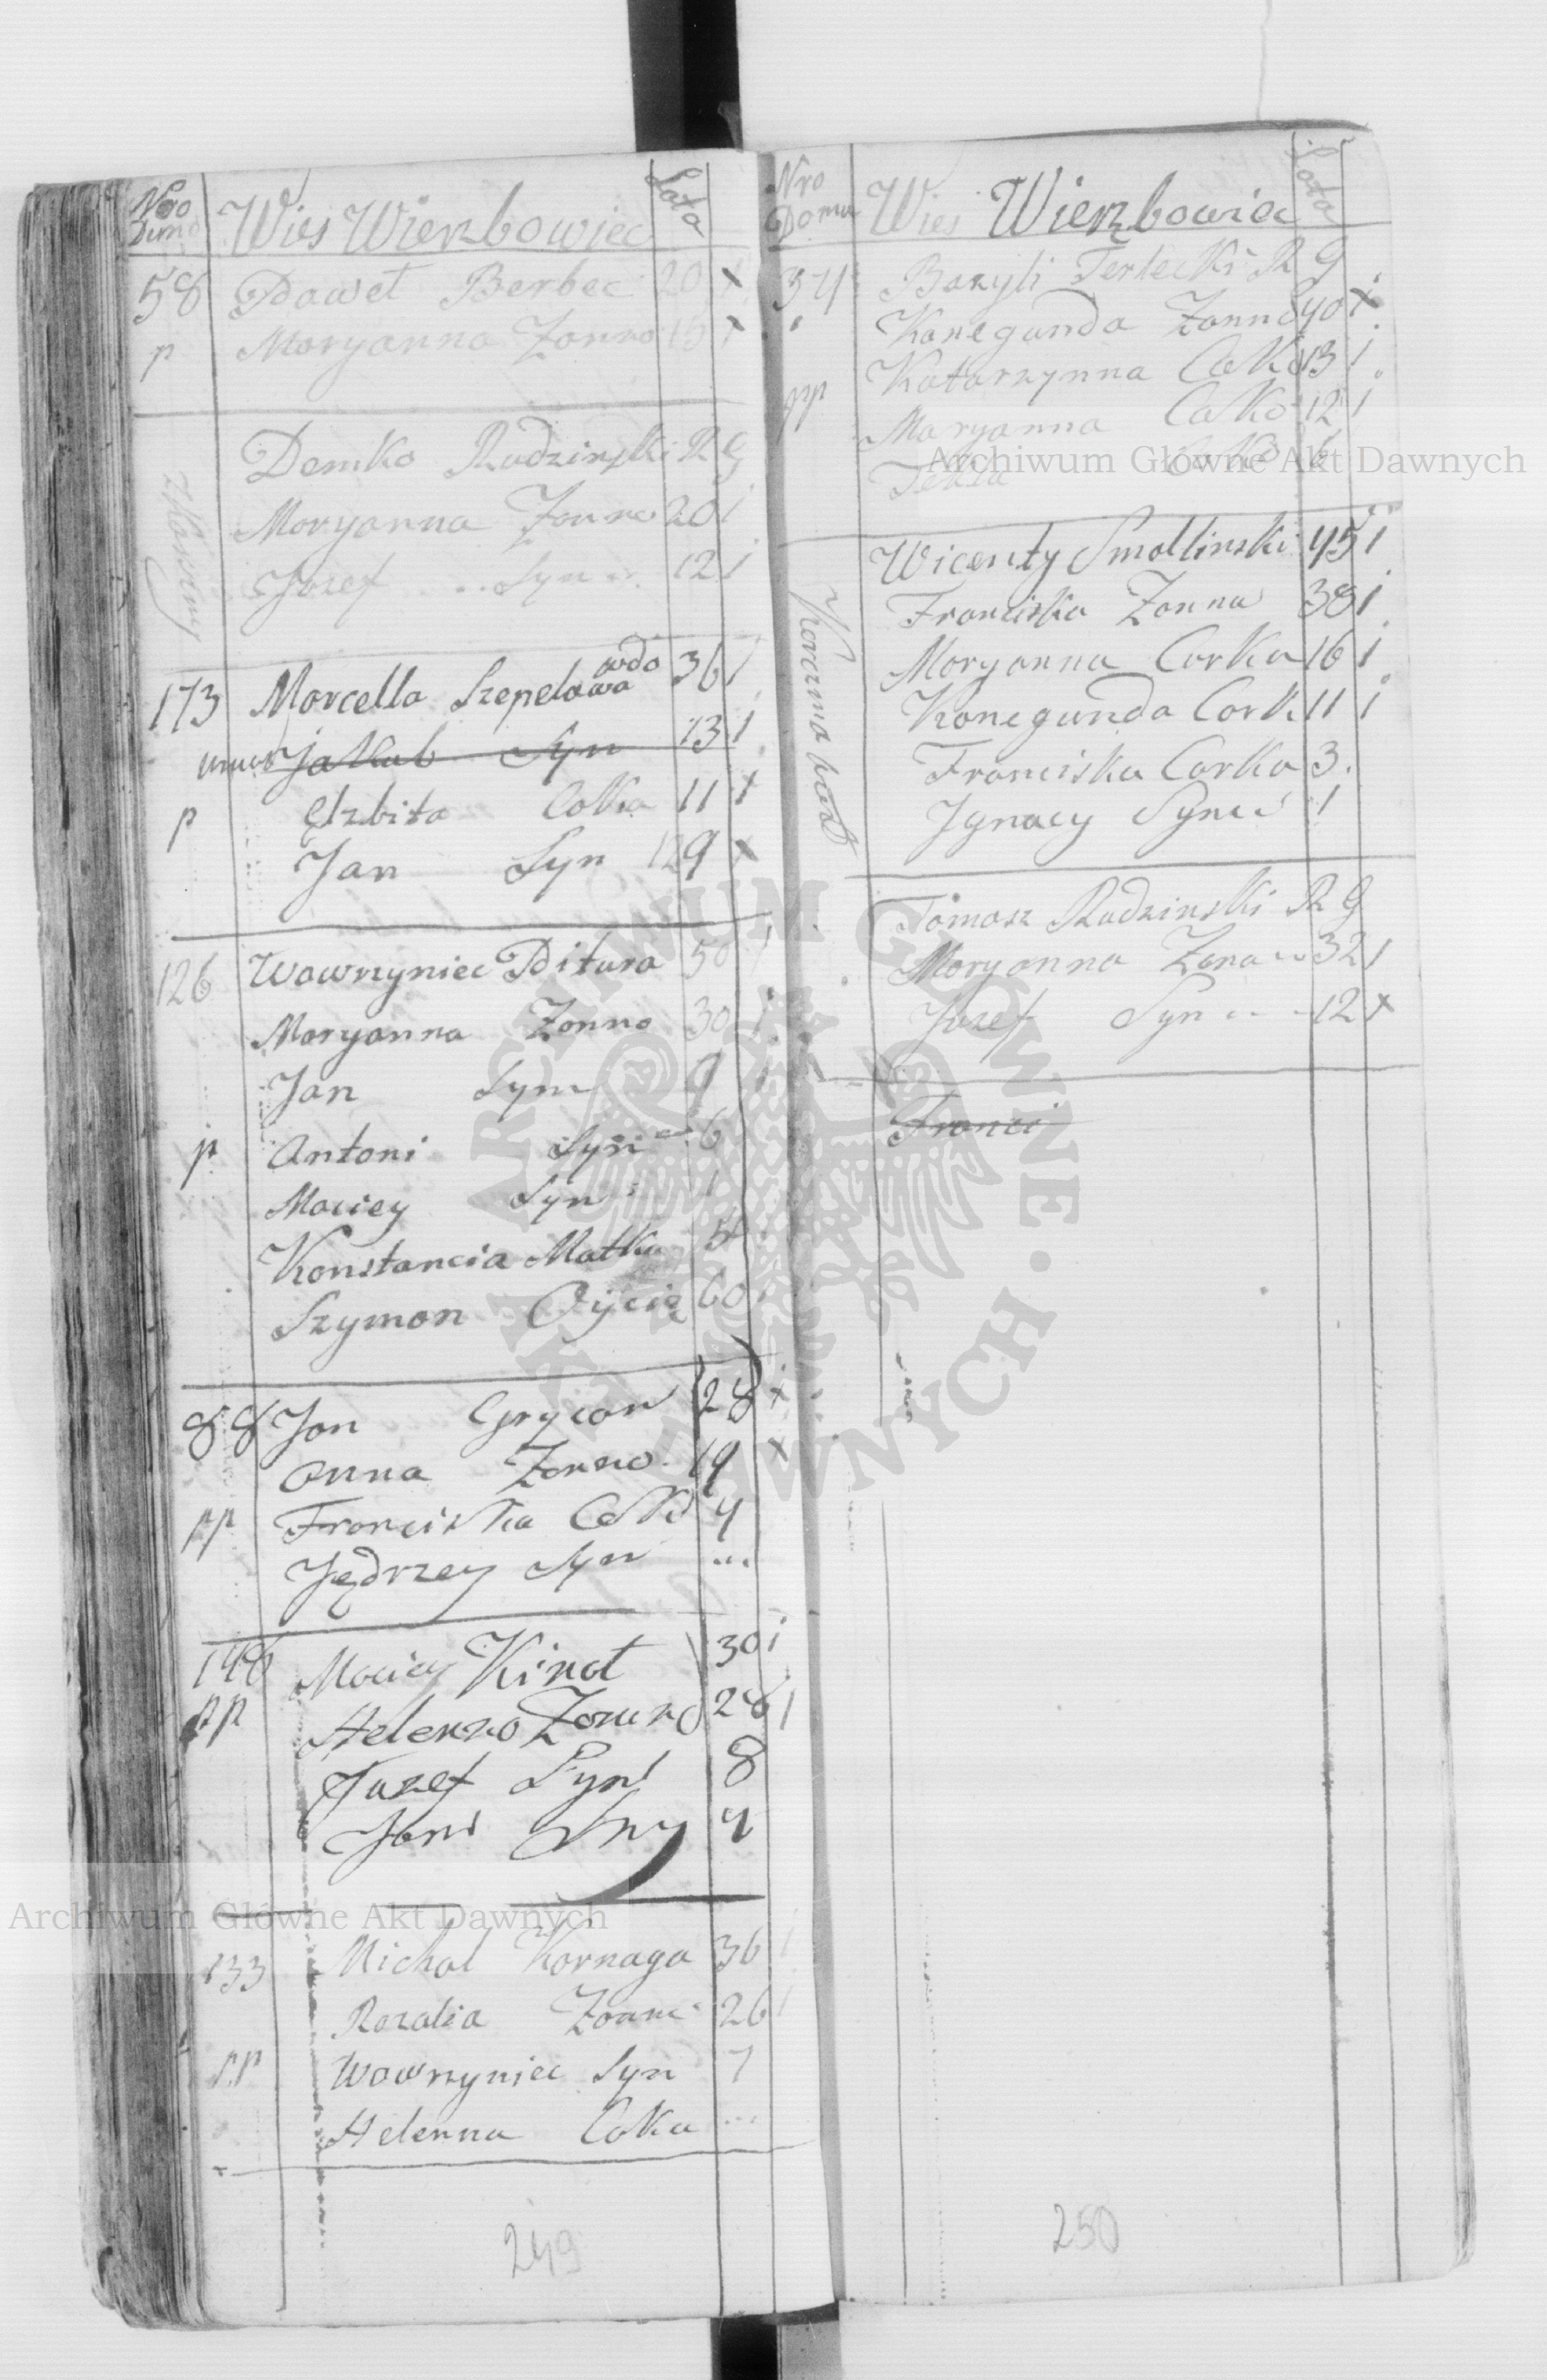 Nro Domu Wies Wierzbowiec Lata
58 Paweł Berbec 20 x
p Maryanna Zonna 15 x
Demko Rudzinski R G
Maryanna Zonna 20 i
Jozef Syn 12 i
173 Marcella Szepelowa wdo 36 i
umar Jakub Syn 13 i
p Elzbita Cołka 11 x
Jan Syn 9 x
126 Wawrzyniec Pitura 50 i
Maryanna Zonna 30 i
Jan Syn 9 i
p Antoni Syn 6
Maciey Syn 1
Konstancia Matka
Szymon Oyciec 60
88 Jan Grycan 28 x
Anna Zonna 19 x
pp Franciszka Cołka 4
Jędrzey Syn ...
146 Maciey Kinal 30 i
pp Helenna Zonna 26 i
Jozef Syn 8
Jan Syn 4
133 Michal Kornaga 36 i
Rozalia Zonna 26 i
pp Wawrzyniec Syn 7
Helenna Cołka ...
249
Nro Domu Wies Wierzbowiec Lata
34 Bazyli Terlecki R G
Konegunda Zonna 40 x
Katarzynna Cołka 13 i
pp Maryanna Cołka 12 i
Tekla Cołka 6
Karczma
Wicenty Smollinski 45 i
Franciszka Zonna 38 i
Maryanna Corka 16 i
Konegunda Cork 11 i
Franciszka Corka 3
Jgnacy Syn 1
Tomasz Rudzinski R G
Maryanna Zona 32 i
Jozef Syn 12 x
Franci
250
Archiwum Główne Akt Dawnych
Archiwum Główne Akt Dawnych
ARCHIWUM GŁÓWNE AKT DAWNYCH